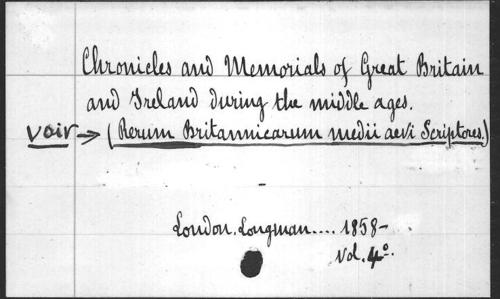 Chronicles and Memorials of Great Britain
and Ireland during the middle ages.
voir → (Rerum Britannicarum medii aevi Scriptores.)
London. Longman.... 1858-
Vol. 4º.